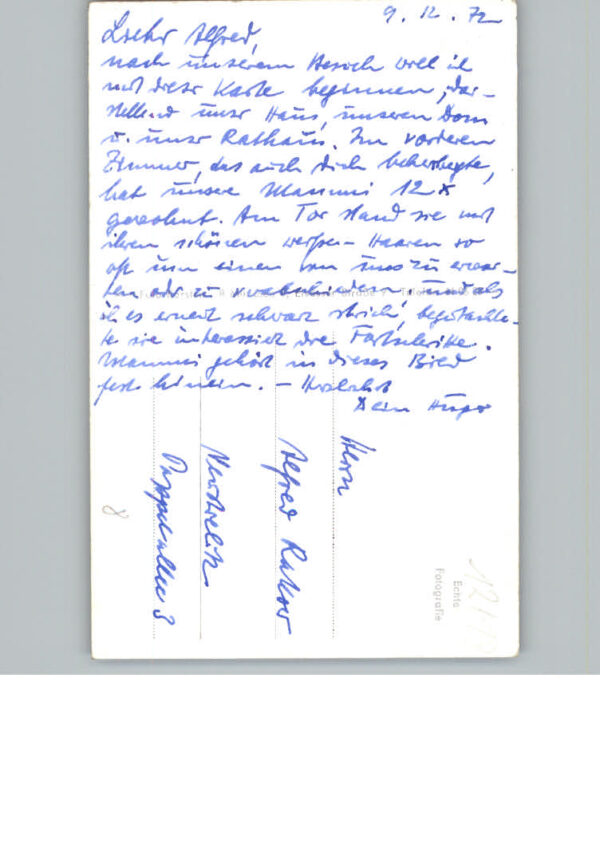 9. 12. 72
Lieber Alfred,
nach unserem Besuch will ich
mit dieser Karte beginnen, dar-
stellend unser Haus, unseren Dom
u. unser Rathaus. Im vorderen
Zimmer, das auch Dich beherbergte,
hat unsere Mammi 12 x
gewohnt. Am Tor stand sie mit
ihren schönen weißen Haaren so
oft um einen von uns zu erwar-
ten oder zu verabschieden und als
ich es erneut schwarz strich, begutachte-
te sie interessiert die Fortschritte.
Mammi gehört in dieses Bild
fest hinein. – Herzlichst
Dein Hugo
Herrn
Alfred Rakow
Neustrelitz
Pappelallee 3
8
Echte
Fotografie